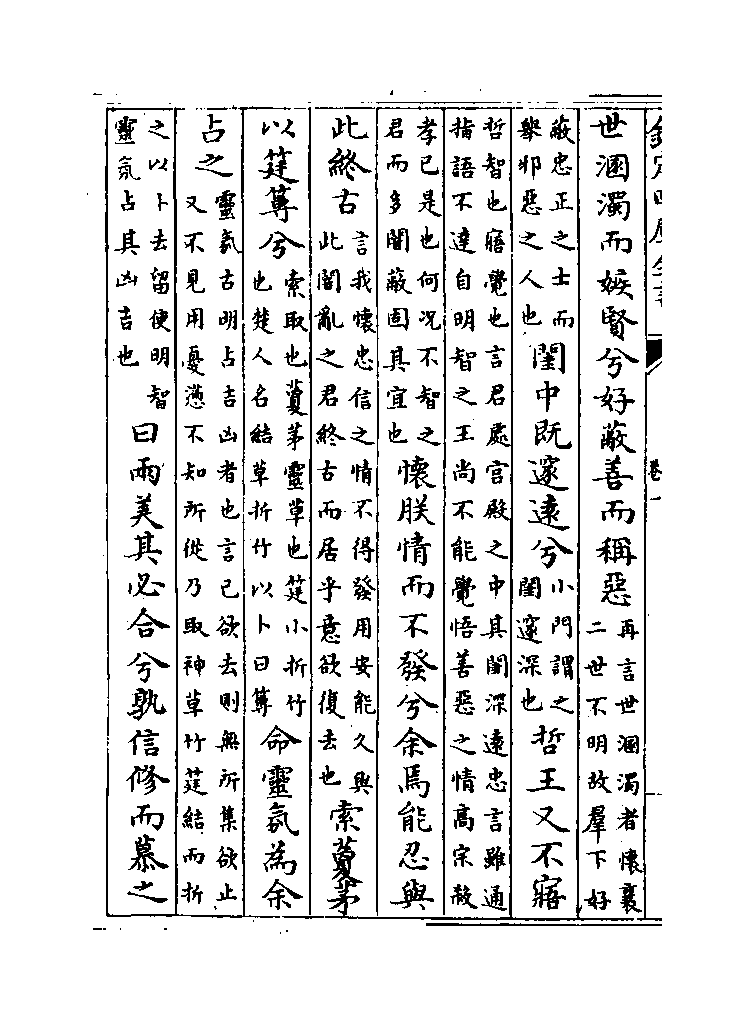 欽定四庫全書 卷一
世溷濁而嫉賢兮好蔽善而稱惡再言世溷濁者懷襄二世不明故羣下好
蔽忠正之士而舉邪惡之人也閨中既邃遠兮小門謂之閨邃深也哲王又不寤
哲智也寤覺也言君處宮殿之中其閨深遠忠言雖通指語不達自明智之王尚不能覺悟善惡之情高宗殺
孝已是也何況不智之君而多闇蔽固其宜也懷朕情而不發兮余焉能忍與
此終古言我懷忠信之情不得發用安能久與此闇亂之君終古而居乎意欲復去也索藑茅
以筳篿兮索取也藑茅靈草也筳小折竹也楚人名結草折竹以卜曰篿命靈氛為余
占之靈氛古明占吉凶者也言已欲去則無所集欲止又不見用憂懣不知所從乃取神草竹筳結而折
之以卜去留使明智靈氛占其凶吉也曰兩美其必合兮孰信修而慕之